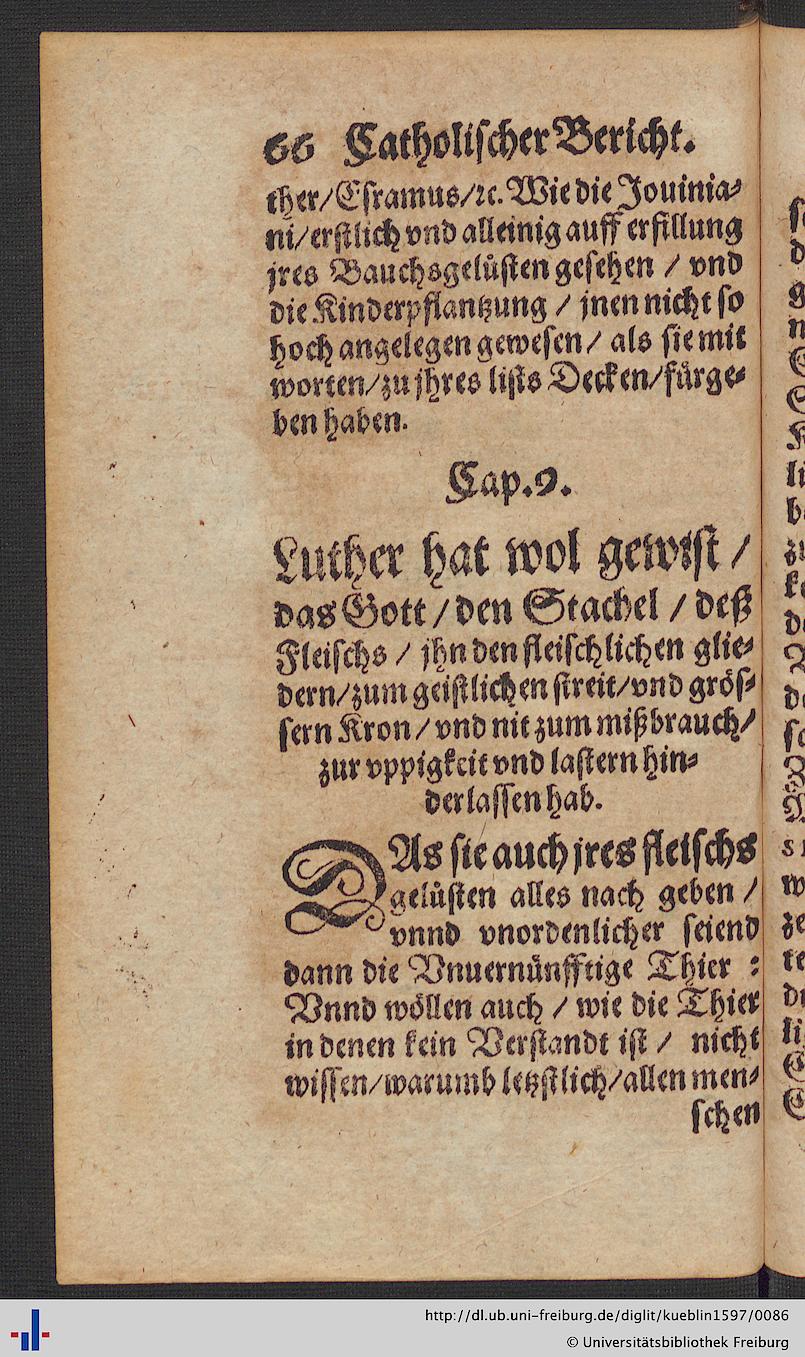 66 Catholischer Bericht.
ther/Esramus/ꝛc. Wie die Jouinia⸗
ni/erstlich vnd alleinig auff erfillung
jres Bauchsgelüsten gesehen / vnd
die Kinderpflantzung / jnen nicht so
hoch angelegen gewesen/ als sie mit
worten/zu jhres lists Decken/fürge⸗
ben haben.
Cap. 9.
Luther hat wol gewist /
das Gott / den Stachel / deß
Fleischs / jhn den fleischlichen glie⸗
dern/zum geistlichen streit/vnd grös⸗
sern Kron / vnd nit zum mißbrauch/
zur vppigkeit vnd lastern hin⸗
derlassen hab.
DAs sie auch jres fleischs
gelüsten alles nach geben /
vnnd vnordenlicher seiend
dann die Vnuernünfftige Thier :
Vnnd wöllen auch / wie die Thier
in denen kein Verstandt ist / nicht
wissen/warumb letzstlich/allen men⸗
schen
http://dl.ub.uni-freiburg.de/diglit/kueblin1597/0086
© Universitätsbibliothek Freiburg